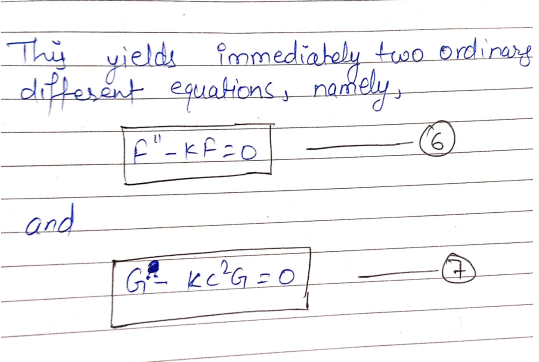 This yields immediately two ordinary
different equations, namely,
F" - KF = 0 ——— 6
and
G̈ - KC²G = 0 ——— 7